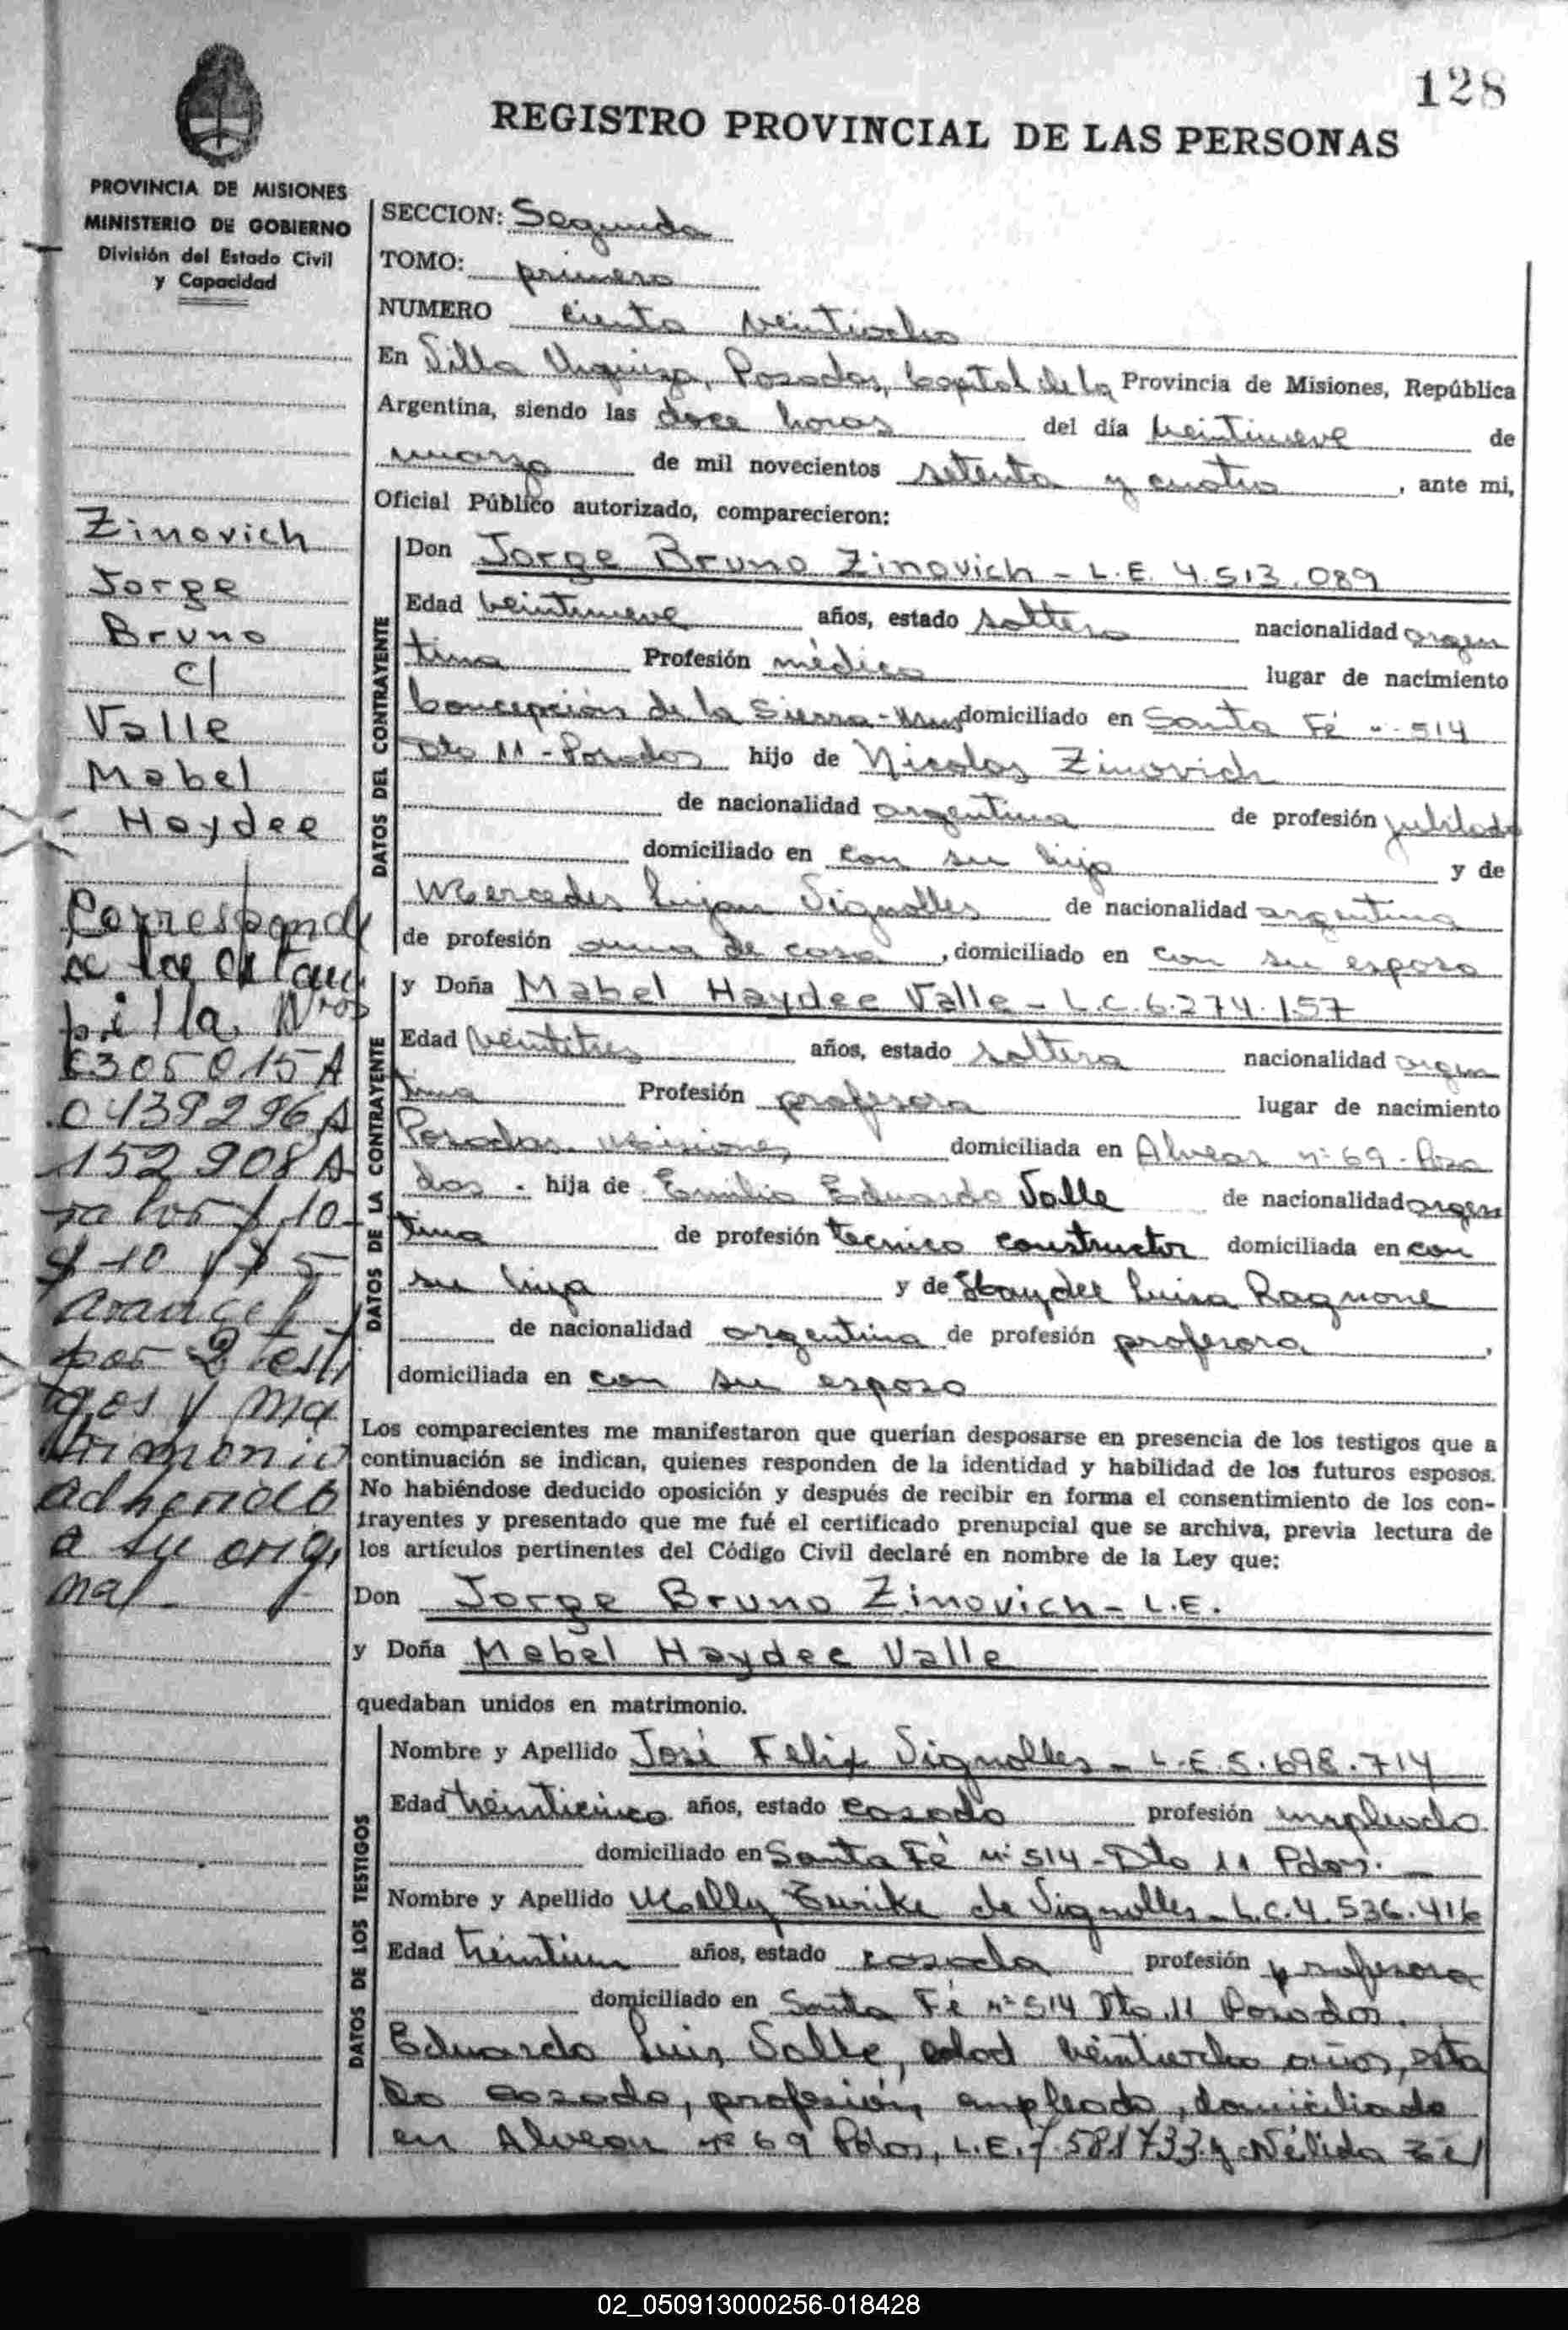 128
REGISTRO PROVINCIAL DE LAS PERSONAS
PROVINCIA DE MISIONES
MINISTERIO DE GOBIERNO
División del Estado Civil
y Capacidad
Zinovich
Jorge
Bruno
c/
Valle
Mabel
Haydee
Corresponde
a la estam
pilla Nros
0305015A
0439296A
152908A
valor $ 10
$ 10 y $ 5
arancel
por 2 testi
gos y ma
trimonio
adherido
a su origi
nal
SECCION: Segunda
TOMO: primero
NUMERO ciento veintiocho
En Villa Urquiza, Posadas, Capital de la Provincia de Misiones, República
Argentina, siendo las doce horas del día veintinueve de
marzo de mil novecientos setenta y cuatro, ante mi,
Oficial Público autorizado, comparecieron:
DATOS DEL CONTRAYENTE
Don Jorge Bruno Zinovich - L.E. 4.513.089
Edad veintinueve años, estado soltero nacionalidad argen
tina Profesión médico lugar de nacimiento
Concepción de la Sierra - domiciliado en Santa Fé 514
Dto 11 - Posadas hijo de Nicolas Zinovich
de nacionalidad argentina de profesión jubilado
domiciliado en con su hijo y de
Mercedes Lujan Vignolles de nacionalidad argentina
de profesión ama de casa, domiciliado en con su esposo
DATOS DE LA CONTRAYENTE
y Doña Mabel Haydee Valle - L.C. 6.274.157
Edad veintitres años, estado soltera nacionalidad argen
tina Profesión profesora lugar de nacimiento
Posadas - Misiones domiciliada en Alvear nº 69 - Posa
das - hija de Emilio Eduardo Valle de nacionalidad argen
tina de profesión tecnico constructor domiciliada en con
su hija y de Haydee Luisa Ragnone
de nacionalidad argentina de profesión profesora,
domiciliada en con su esposo
Los comparecientes me manifestaron que querían desposarse en presencia de los testigos que a
continuación se indican, quienes responden de la identidad y habilidad de los futuros esposos.
No habiéndose deducido oposición y después de recibir en forma el consentimiento de los con-
trayentes y presentado que me fué el certificado prenupcial que se archiva, previa lectura de
los artículos pertinentes del Código Civil declaré en nombre de la Ley que:
Don Jorge Bruno Zinovich - L.E.
y Doña Mabel Haydee Valle
quedaban unidos en matrimonio.
DATOS DE LOS TESTIGOS
Nombre y Apellido José Felix Vignolles - L.E. 5.698.714
Edad treinticinco años, estado casado profesión empleado
domiciliado en Santa Fé nº 514 - Dto 11 Pdas.
Nombre y Apellido de Vignolles - L.C. 4.536.416
Edad treintiun años, estado casada profesión profesora
domiciliado en Santa Fé nº 514 Dto. 11 Posadas.
Eduardo Luis Valle, edad veintiocho años, esta
do casado, profesión empleado, domiciliado
en Alvear nº 69 Pdas, L.E. 7.581733 y Nélida
02_050913000256-018428